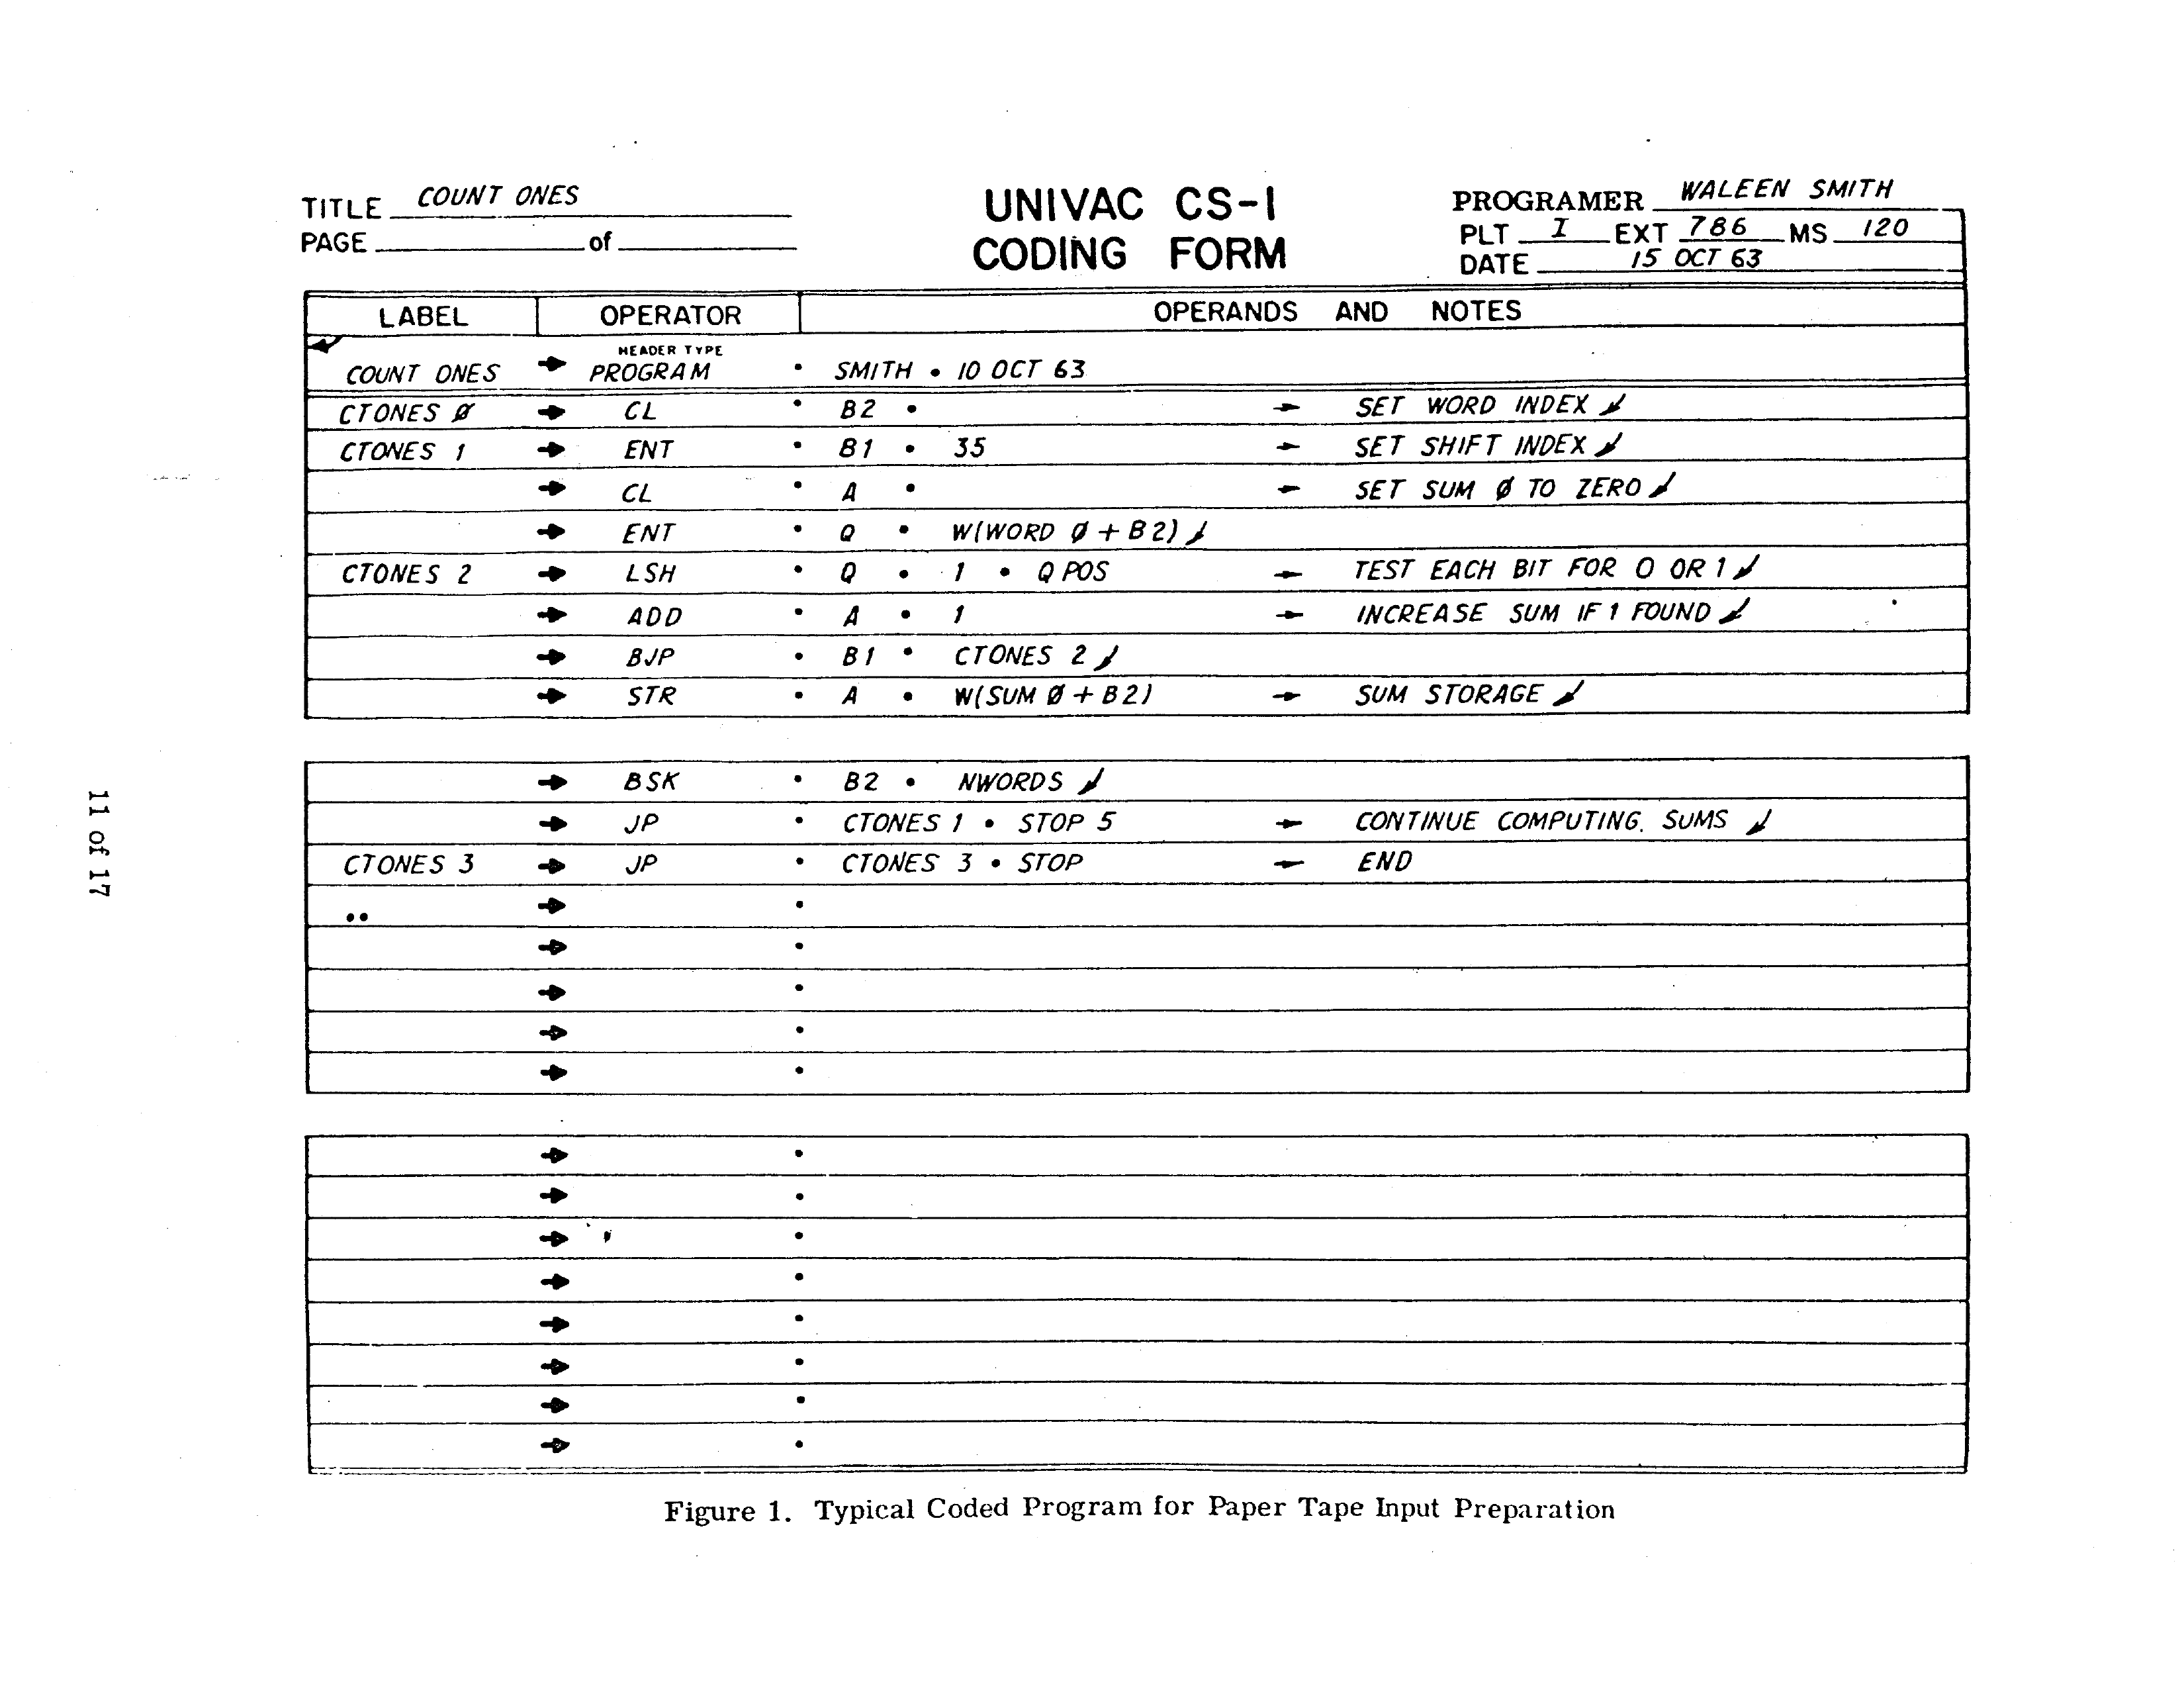 TITLE COUNT ONES
PAGE of
UNIVAC CS-1
CODING FORM
PROGRAMER WALEEN SMITH
PLT I EXT 786 MS 120
DATE 15 OCT 63
LABEL OPERATOR OPERANDS AND NOTES
HEADER TYPE
COUNT ONES → PROGRAM • SMITH • 10 OCT 63
CTONES Ø → CL • B2 • → SET WORD INDEX ↙
CTONES 1 → ENT • B1 • 35 → SET SHIFT INDEX ↙
→ CL • A • → SET SUM Ø TO ZERO ↙
→ ENT • Q • W(WORD Ø + B2) ↙
CTONES 2 → LSH • Q • 1 • Q POS → TEST EACH BIT FOR 0 OR 1 ↙
→ ADD • A • 1 → INCREASE SUM IF 1 FOUND ↙
→ BJP • B1 • CTONES 2 ↙
→ STR • A • W(SUM Ø + B2) → SUM STORAGE ↙
→ BSK • B2 • NWORDS ↙
→ JP • CTONES 1 • STOP 5 → CONTINUE COMPUTING. SUMS ↙
CTONES 3 → JP • CTONES 3 • STOP → END
•• → •
→ •
→ •
→ •
→ •
→ •
→ •
→ •
→ •
→ •
→ •
→ •
→ •
Figure 1. Typical Coded Program for Paper Tape Input Preparation
11 of 17